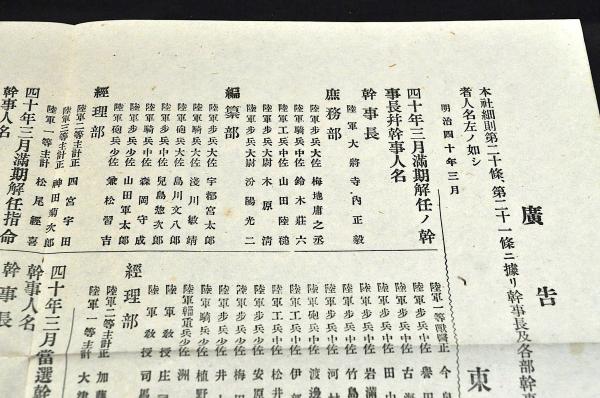 廣告
本社細則第二十條、第二十一條ニ據リ幹事長及各部幹事
者人名左ノ如シ
明治四十年三月
四十年三月滿期解任ノ幹
事長幷幹事人名
幹事長
陸軍大將 寺内正毅
庶務部
陸軍步兵大佐 梅地庸之丞
陸軍騎兵中佐 鈴木莊六
陸軍工兵中佐 山田陸槌
陸軍步兵大尉 木原清
陸軍步兵大尉 汾陽光二
編纂部
陸軍步兵大佐 宇都宮太郎
陸軍騎兵大佐 淺川敏靖
陸軍砲兵大佐 島川文八郎
陸軍步兵中佐 兒島惣次郎
陸軍騎兵中佐 森岡守成
陸軍步兵少佐 山田軍太郎
陸軍砲兵少佐 兼松習吉
經理部
陸軍二等主計正 四宮宇田
陸軍三等主計正 神田菊次郎
陸軍一等主計 松尾經喜
四十年三月滿期解任指命
幹事人名
東
陸軍一等獸醫正 今泉
陸軍步兵少佐 譽田
陸軍步兵少佐 古海
陸軍步兵中佐 田中
陸軍步兵中佐 岩滿
陸軍步兵中佐 竹島
陸軍步兵中佐 河村
陸軍砲兵中佐 渡邊
陸軍工兵中佐 伊
陸軍工兵中佐 松井
陸軍步兵少佐 安原
陸軍步兵少佐 梅田
陸軍步兵少佐 井上
陸軍騎兵少佐 植野
陸軍輜重兵少佐 洲
陸軍敎授 庄司
陸軍敎授 司馬
經理部
陸軍二等主計正 加藤
陸軍一等主計 大津
四十年三月當選幹
幹事人名
幹事長